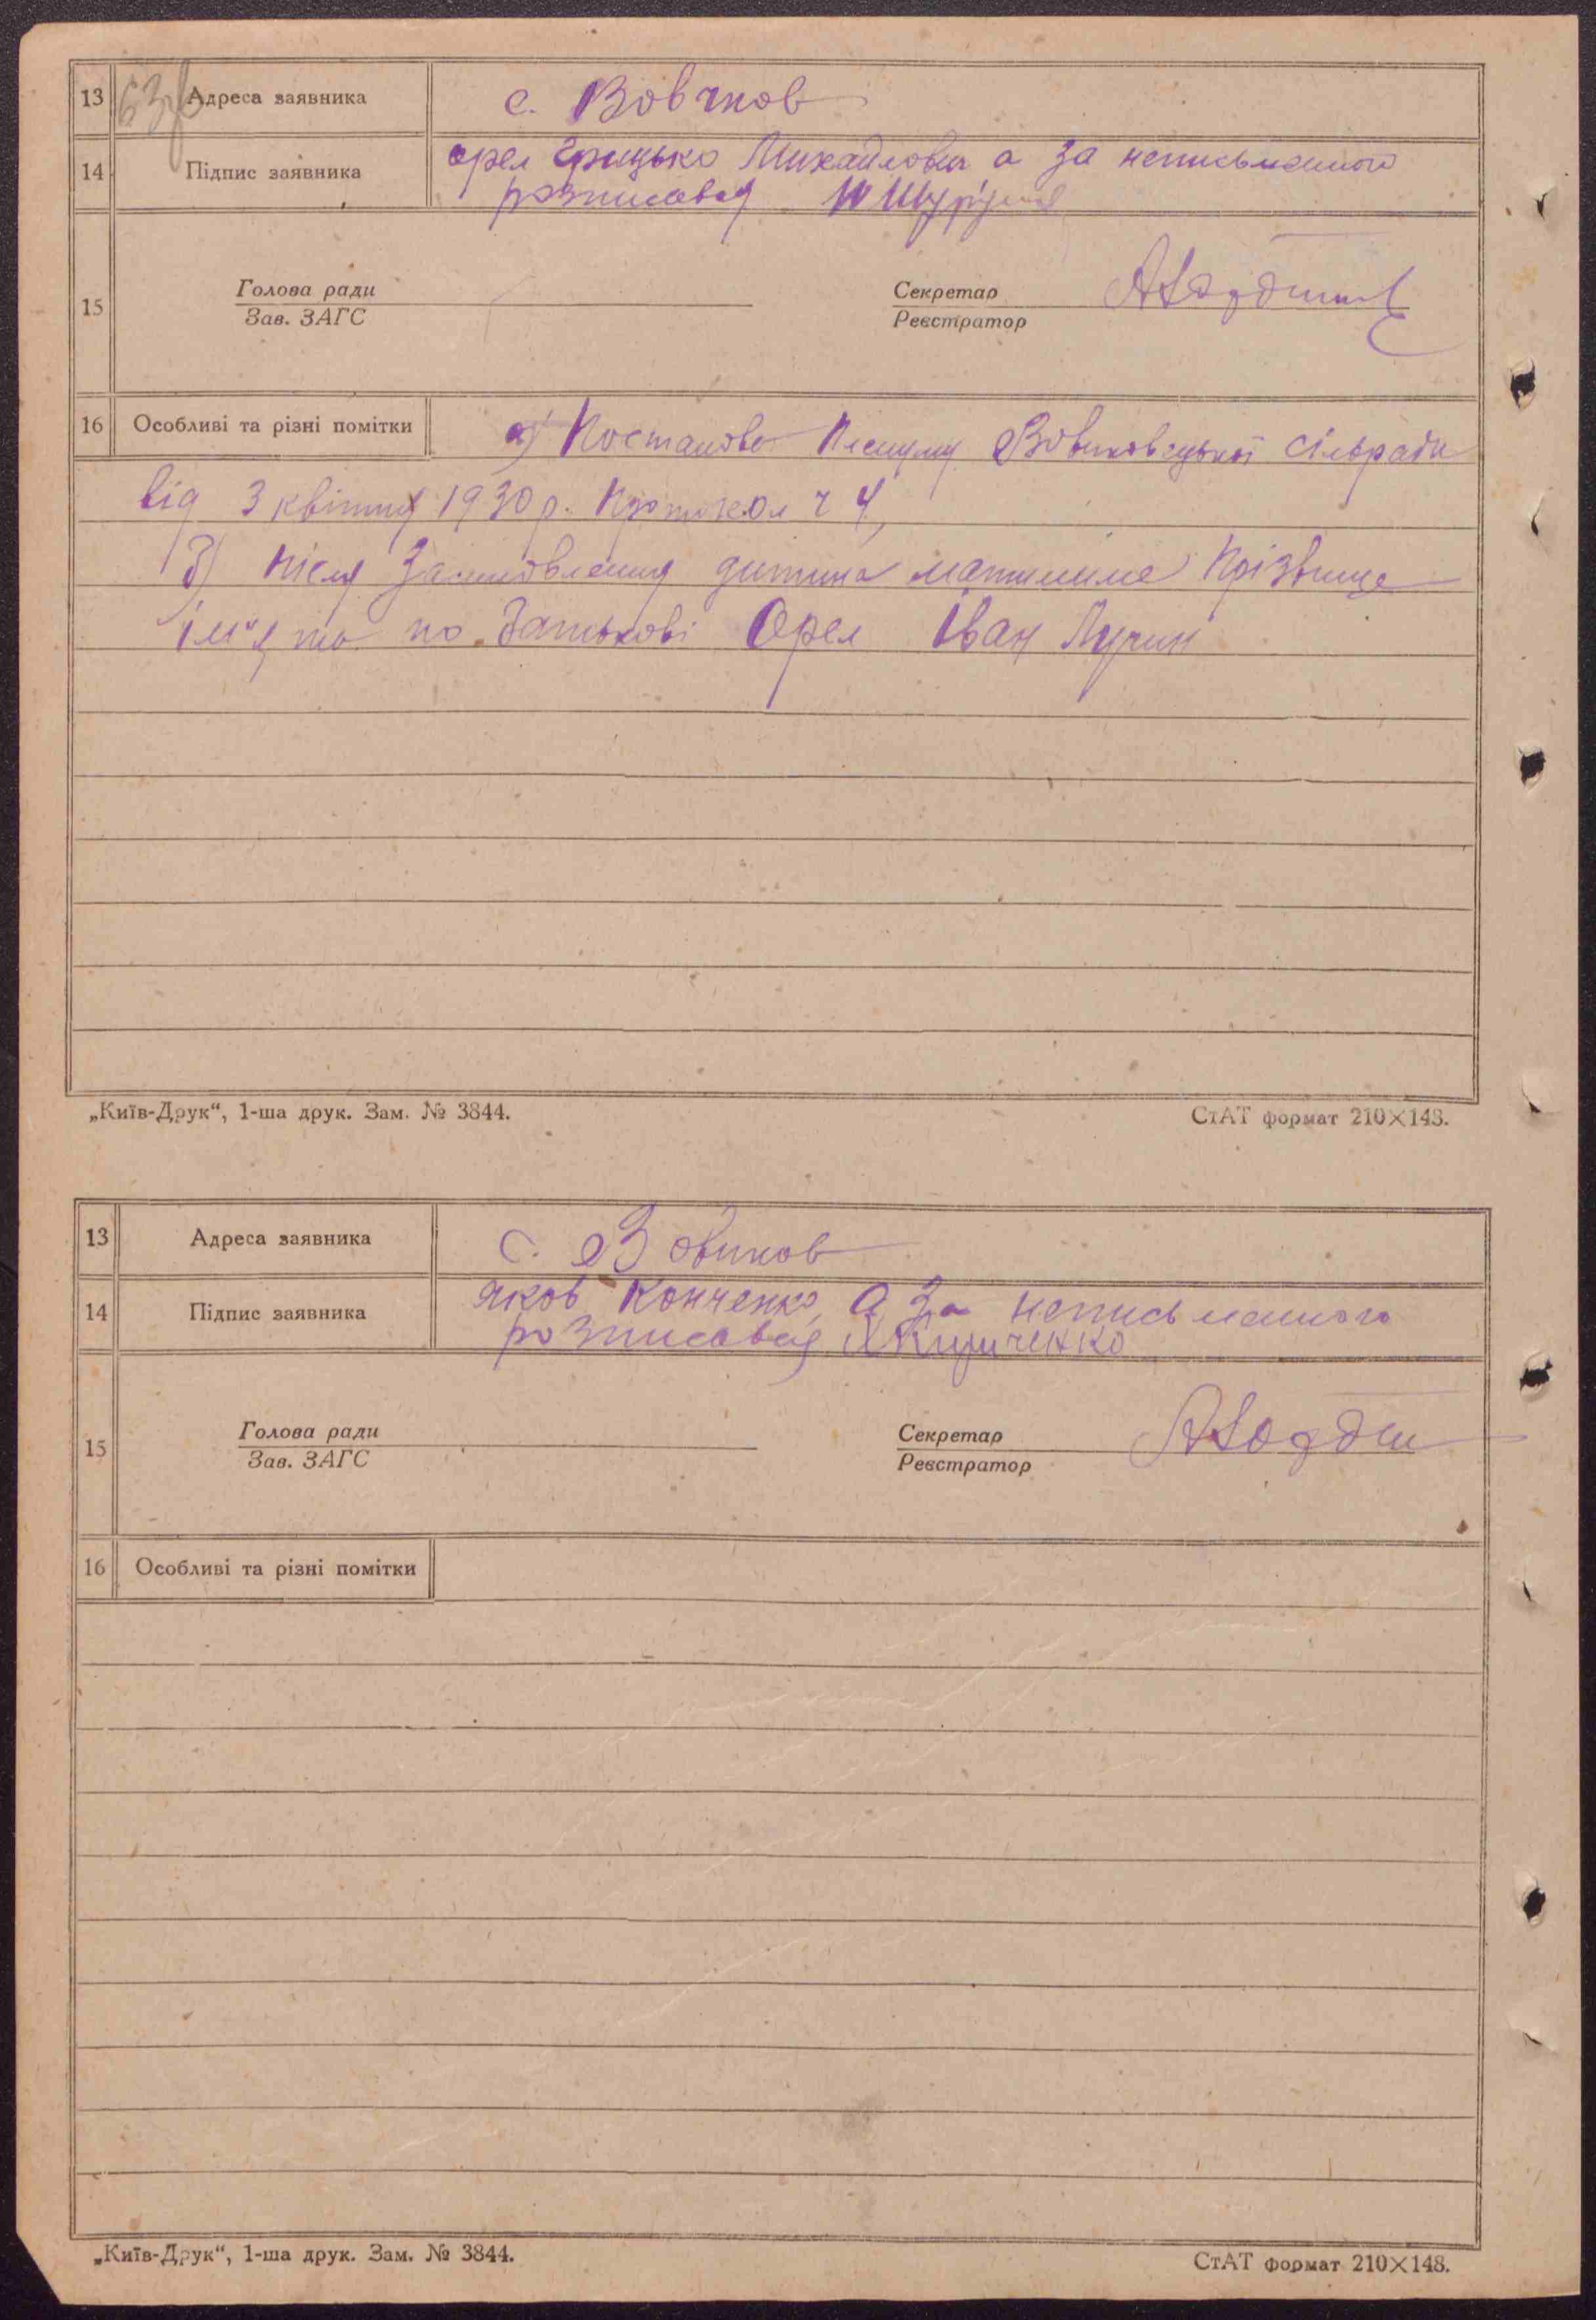 13 Адреса заявника с. Вовчков
14 Підпис заявника орел Грицько Михайлович а за неписьменого
розписався
Голова ради Секретар
15
Зав. ЗАГС Реєстратор
16 Особливі та різні помітки а) Постанова Пленуму Вовчковецької сільради
від 3 квітня 1930 р. Протокол ч 4,
б) після дитина матиме Прізвище
ім'я та по батькові Орел Іван
„Київ-Друк“, 1-ша друк. Зам. № 3844. СтАТ формат 210×148.
13 Адреса заявника с. Вовчков
14 Підпис заявника Яков Конченко, а за неписьменного
розписався
Голова ради Секретар
15
Зав. ЗАГС Реєстратор
16 Особливі та різні помітки
„Київ-Друк“, 1-ша друк. Зам. № 3844. СтАТ формат 210×148.